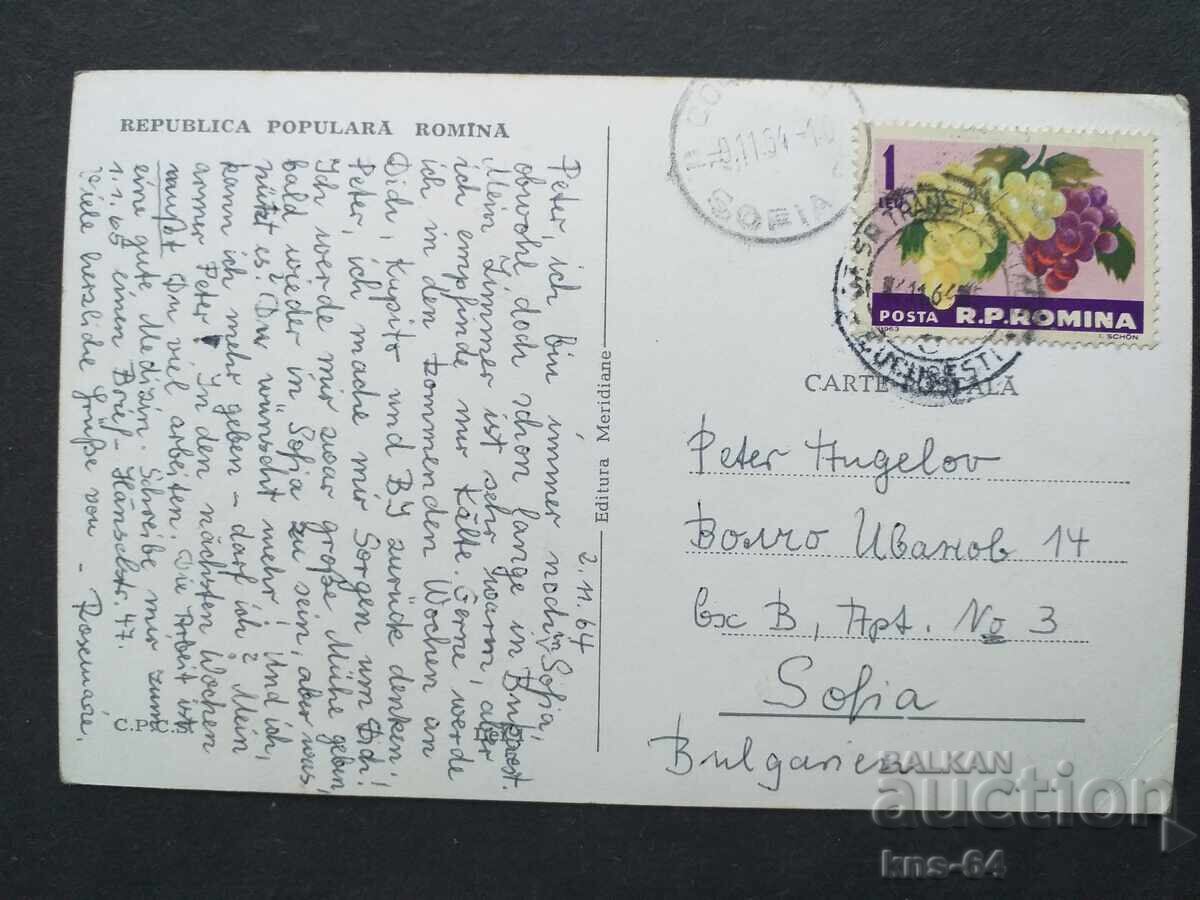 REPUBLICA POPULARĂ ROMÎNĂ
2.11.64
Peter, ich bin immer noch in Sofia,
obwohl doch schon lange in Bukarest.
Mein Zimmer ist sehr warm, aber
ich empfinde nur Kälte. Gerne werde
ich in den kommenden Wochen an
Dich, Kupito und BY zurück denken!
Peter, ich mache mir Sorgen um Dich!
Ich werde mir zwar große Mühe geben,
bald wieder in Sofia zu sein, aber was
nützt es? Du wünscht mehr, und ich,
kann ich mehr geben – darf ich? Mein
armer Peter! In den nächsten Wochen
mußt Du viel arbeiten. Die Arbeit ist
eine gute Medizin. Schreibe mir zum
1.1.65 einen Brief – Hänselstr. 47.
Viele herzliche Grüße von – Rosmarie.
C.P.C.S.
Editura Meridiane
SOFIA
9.11.64
1 LEU
POSTA R.P.ROMINA
1963
I. SCHÖN
TRANSP
11.64
BUCUREȘTI
CARTE POȘTALĂ
Peter Angelov
Волчо Иванов 14
вх В, Apt. No 3
Sofia
Bulgarien
BALKAN
auction
kns-64